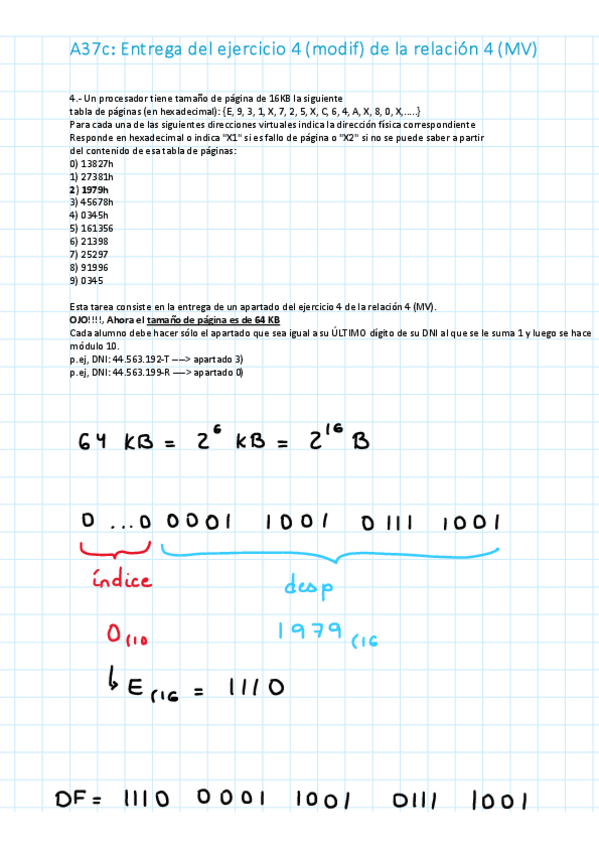 A37c: Entrega del ejercicio 4 (modif) de la relación 4 (MV)
4.- Un procesador tiene tamaño de página de 16KB la siguiente
tabla de páginas (en hexadecimal): {E, 9, 3, 1, X, 7, 2, 5, X, C, 6, 4, A, X, 8, 0, X,.....}
Para cada una de las siguientes direcciones virtuales indica la dirección física correspondiente
Responde en hexadecimal o indica "X1" si es fallo de página o "X2" si no se puede saber a partir
del contenido de esa tabla de páginas:
0) 13827h
1) 27381h
2) 1979h
3) 45678h
4) 0345h
5) 161356
6) 21398
7) 25297
8) 91996
9) 0345
Esta tarea consiste en la entrega de un apartado del ejercicio 4 de la relación 4 (MV).
OJO!!!!, Ahora el tamaño de página es de 64 KB
Cada alumno debe hacer sólo el apartado que sea igual a su ÚLTIMO dígito de su DNI al que se le suma 1 y luego se hace
módulo 10.
p.ej, DNI: 44.563.192-T ----> apartado 3)
p.ej, DNI: 44.563.199-R ----> apartado 0)
64 KB = 2^6 KB = 2^16 B
0 ...0 0001 1001 0111 1001
índice desp
0(10 1979(16
↳ E(16 = 1110
DF = 1110 0001 1001 0111 1001